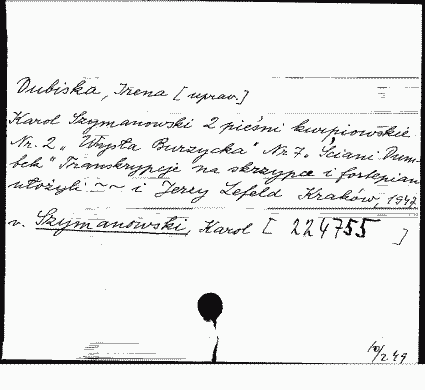 Dubiska, Irena [uprav.]
Karol Szymanowski 2 pieśni kurpiowskie
Nr. 2 „Wysła Burzycka" Nr 7 „Ściani Dum-
bek" Transkrypcje na skrzypce i fortepian
ułożyli ~~ i Jerzy Lefeld Kraków, 1947
v. Szymanowski, Karol [224755]
10/2 49